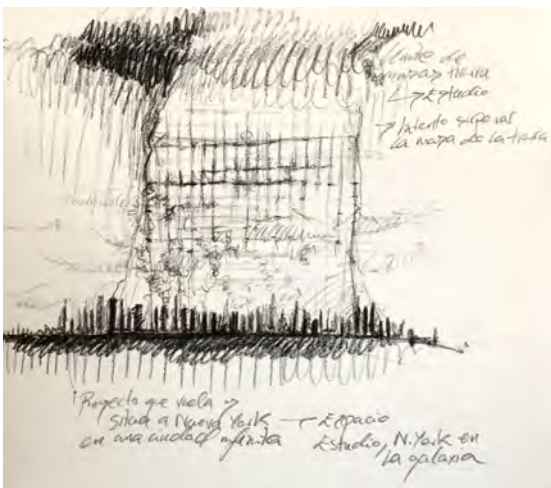 límite de
tierra
↳ Estudio
→ Intento superar
la masa de la tierra
¡ Proyecto que vuela →
situa a Nueva York — Espacio
en una ciudad infinita
Estudio, N. York en
la galaxia